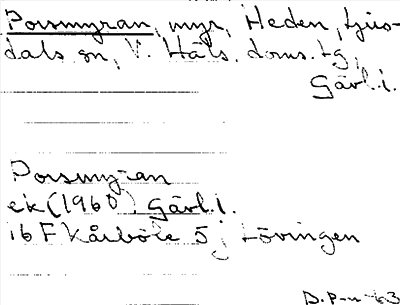 Porsmyran, myr, Heden, Ljus-
dals sn, V. Häls. doms. tg,
Gävl. l.
Porsmyran
ek (1960), Gävl. l.
16 F Kårböle 5 j Lövingen